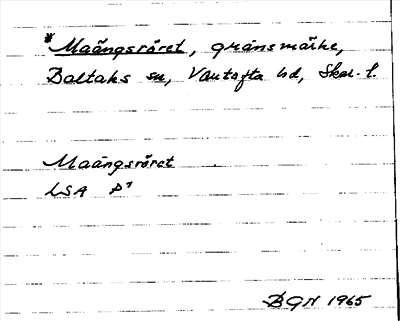 *Maängsröret, gränsmärke,
Baltaks sn, Vartofta hd, Skar. l.
Maängsröret
LSA D⁷
BGN 1965